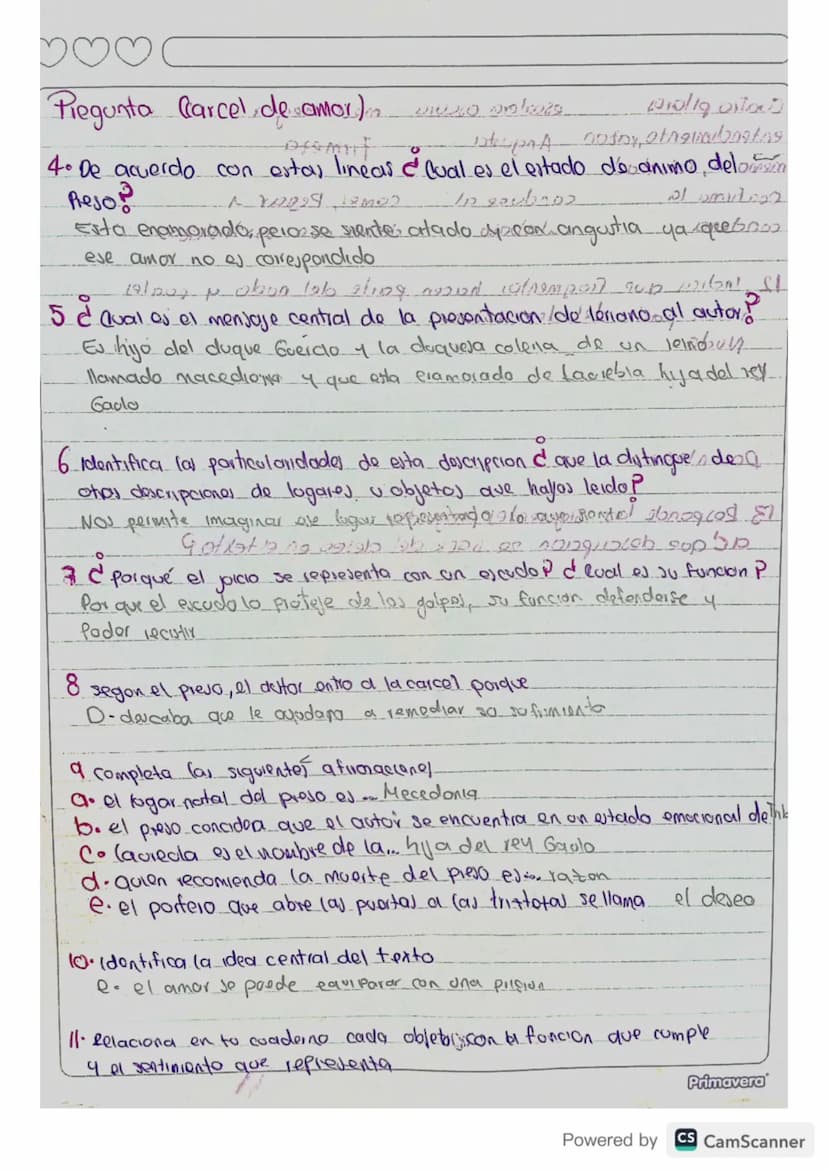 Pregunta (carcel de amor)
4. De acuerdo con estas lineas ¿Cual es el estado de animo del
Preso?
Esta enamorado, pero se siente atado con angustia ya que
ese amor no es correspondido
5 ¿Cual es el mensaje central de la presentacion de leriano al autor?
Es hijo del duque Guerido y la duquesa colena de un
llamado macedionia y que esta enamorado de Lacriebla hija del rey
Gaolo
6 identifica las particularidades de esta descripcion ¿que la distingue de
otras descripciones de logares u objetos que hallas leido?
Nos permite imaginar ese lugar
7 ¿porqué el joicio se representa con un escudo? ¿cual es su funcion?
Por que el escudo lo proteje de los golpes, su funcion defenderse y
Poder
8 segon el preso, el autor entro a la carcel porque
D- deseaba que le ayudara a remediar su sufrimiento
9 completa las siguientes afirmaciones
a. el logar natal del preso es... Mecedonia
b. el preso concidera que el autor se encuentra en un estado emocional de
c. Laureola es el nombre de la... hija del rey Gaolo
d. quien recomienda la muerte del preso es... razon
e. el portero que abre las puertas a las tristetas se llama el deseo
10. identifica la idea central del texto
e- el amor se puede equiparar con una prision
11. Relaciona en tu cuaderno cada objeto con la funcion que cumple
y el sentimiento que representa
Primavera
Powered by CS CamScanner